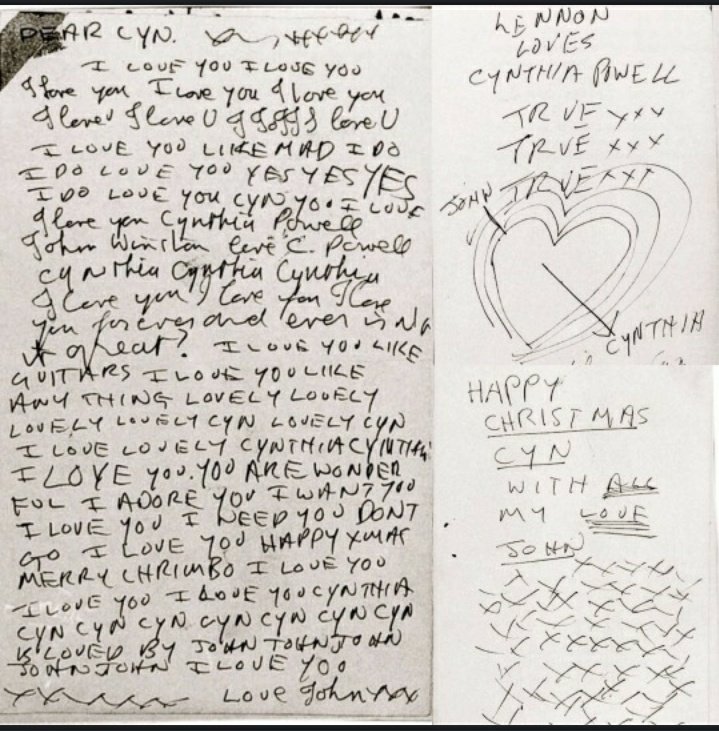 DEAR CYN.
I LOVE YOU I LOVE YOU
I love you I love you I love you
I love U I love U I love U
I LOVE YOU LIKE MAD I DO
I DO LOVE YOU YES YES YES
I DO LOVE YOU CYN YOU I LOVE
I love you Cynthia Powell
John Winston love C. Powell
Cynthia Cynthia Cynthia
I love you I love you I love
you forever and ever isn
it great? I LOVE YOU LIKE
GUITARS I LOVE YOU LIKE
ANY THING LOVELY LOVELY
LOVELY LOVELY CYN LOVELY CYN
I LOVE LOVELY CYNTHIA CYNTHIA
I LOVE YOU. YOU ARE WONDER
FUL I ADORE YOU I WANT YOU
I LOVE YOU I NEED YOU DONT
GO I LOVE YOU HAPPY XMAS
MERRY CHRIMBO I LOVE YOU
I LOVE YOU I LOVE YOU CYNTHIA
CYN CYN CYN CYN CYN CYN CYN
IS LOVED BY JOHN JOHN JOHN
JOHN JOHN I LOVE YOU
xxxxxx Love John xxx
LENNON
LOVES
CYNTHIA POWELL
TRUE xxx
TRUE xxx
TRUE xxx
JOHN
CYNTHIA
HAPPY
CHRISTMAS
CYN
WITH ALL
MY LOVE
JOHN